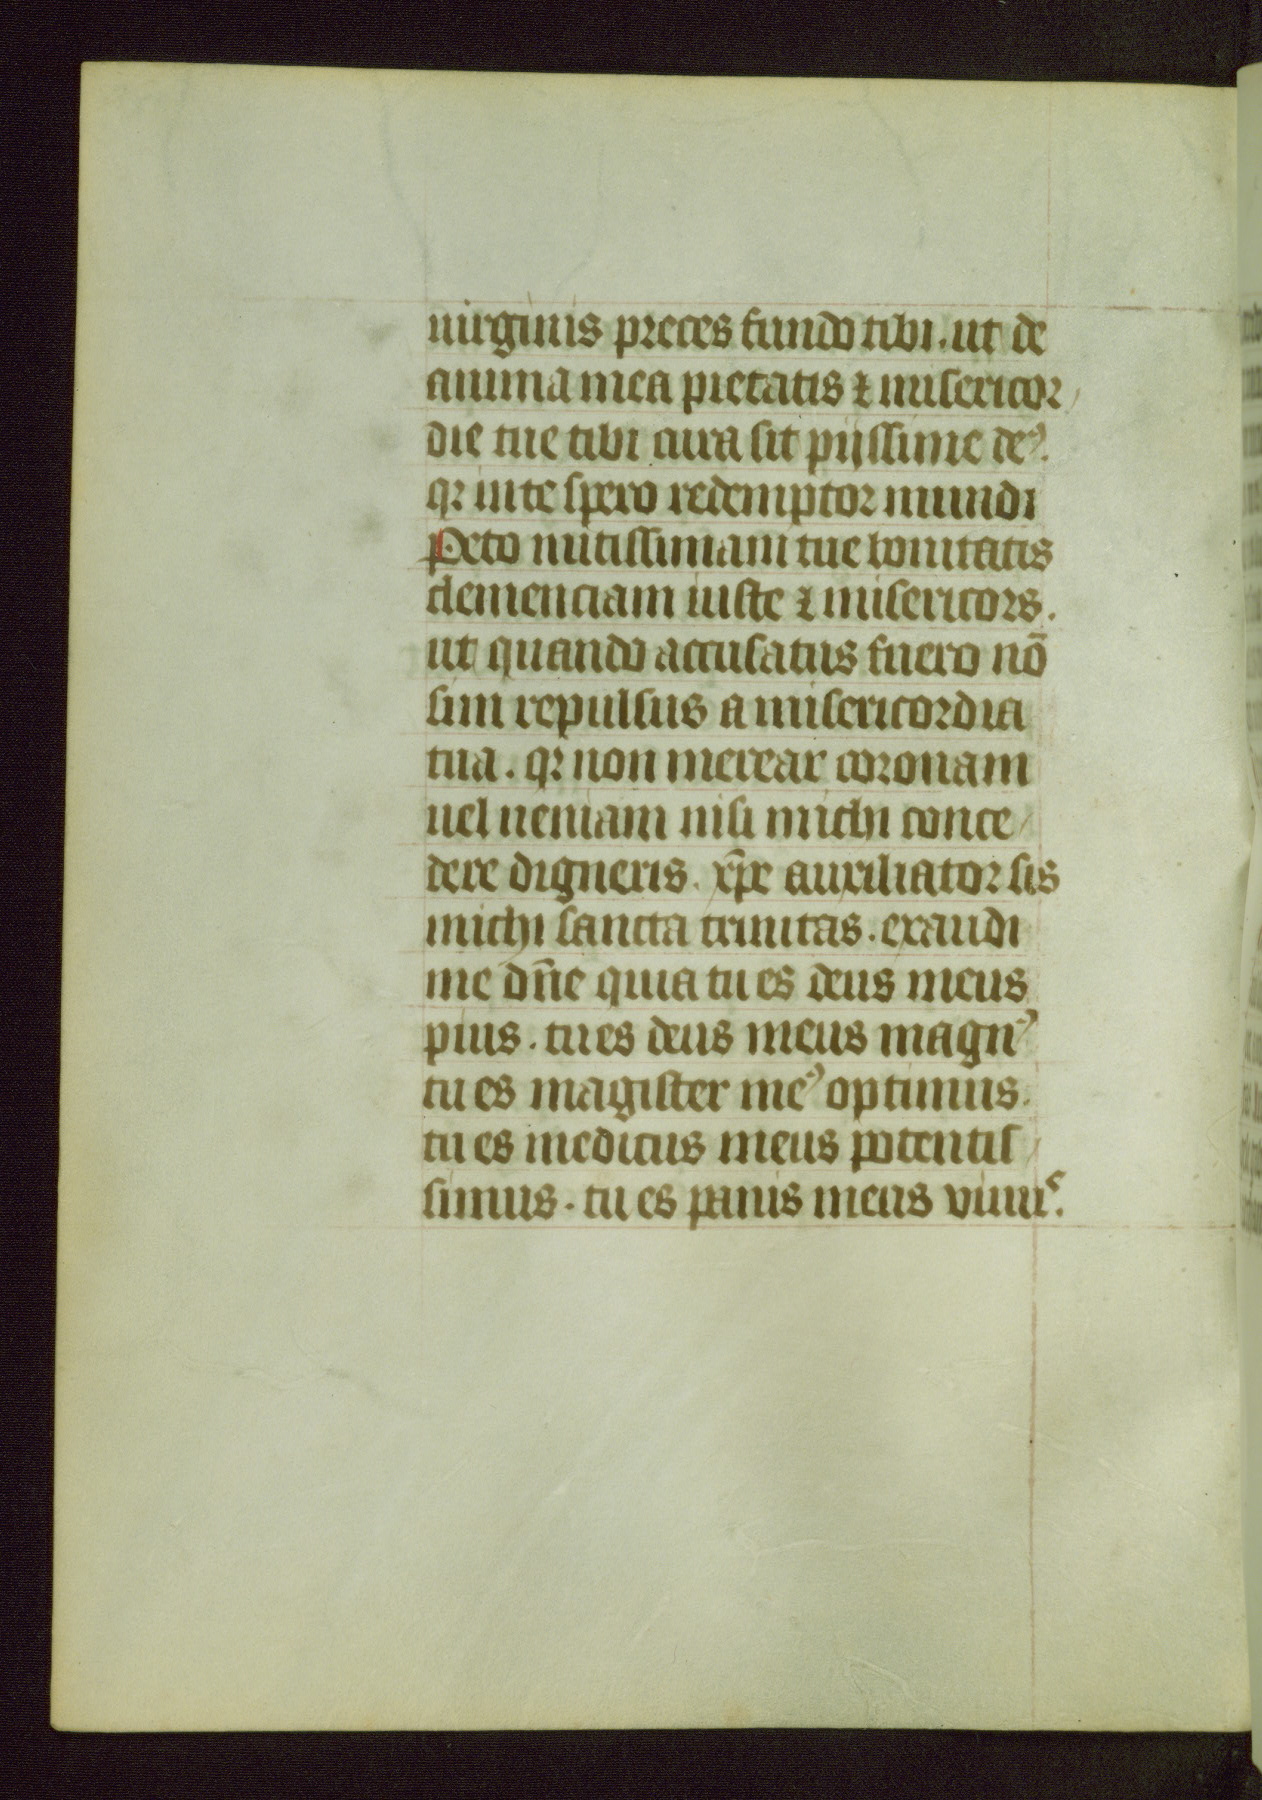 uirginis preces fundo tibi. ut de
anima mea pietatis ⁊ misericor/
die tue tibi cura sit pijssime deꝰ.
qr in te spero redemptor mundi
Peto mitissimam tue bonitatis
clemenciam iuste ⁊ misericors.
ut quando accusatus fuero nō
sim repulsus a misericordia
tua. qr non merear coronam
uel ueniam nisi michi conce/
dere digneris. xp̄e auxiliator sis
michi sancta trinitas. exaudi
me dn̄e quia tu es deus meus
pius. tu es deus meus magnꝰ
tu es magister meꝰ optimus.
tu es medicus meus potentis/
simus. tu es panis meus uiuuˢ.